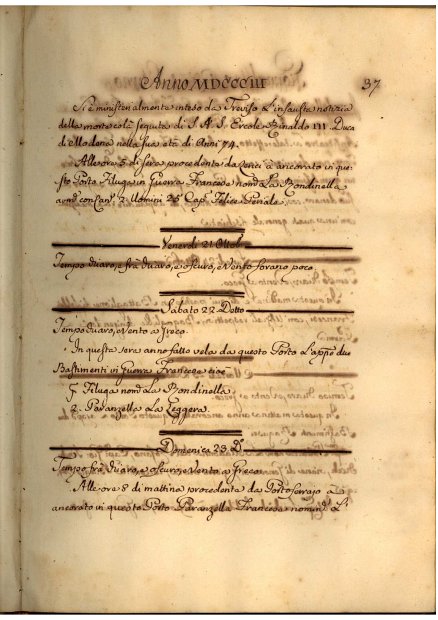 Anno MDCCCIII 37
Si è ministerialmente inteso da Treviso l'infausta notizia
della morte colà seguita di S. A. S. Ercole Rinaldo III Duca
di Modena nella sua età di Anni 74.
Alle ore 5 di sera procedente da è ancorato in que
sto Porto Filuga in Guerra Francese nom.ª La Rondinella
arm.ª con Can.i 2 Uomini 25 Cap.º Felice
Venerdì 21 Ottob.
Tempo chiaro, e frà chiaro, e oscuro, e Vento forano poco.
Sabato 22 Detto
Tempo chiaro, e Vento a Greco.
In questa sera anno fatto vela da questo Porto due
Bastimenti in Guerra Francesi cioè
Filuga nom.ª La Rondinella
2. Paranzella La Leggera.
Domenica 23 D.º
Tempo frà chiaro, e oscuro, e Vento a Greco.
Alle ore 8 di mattina procedente da Portoferrajo a
ancorato in questo Porto Paranzella Francese nomin.ª L'